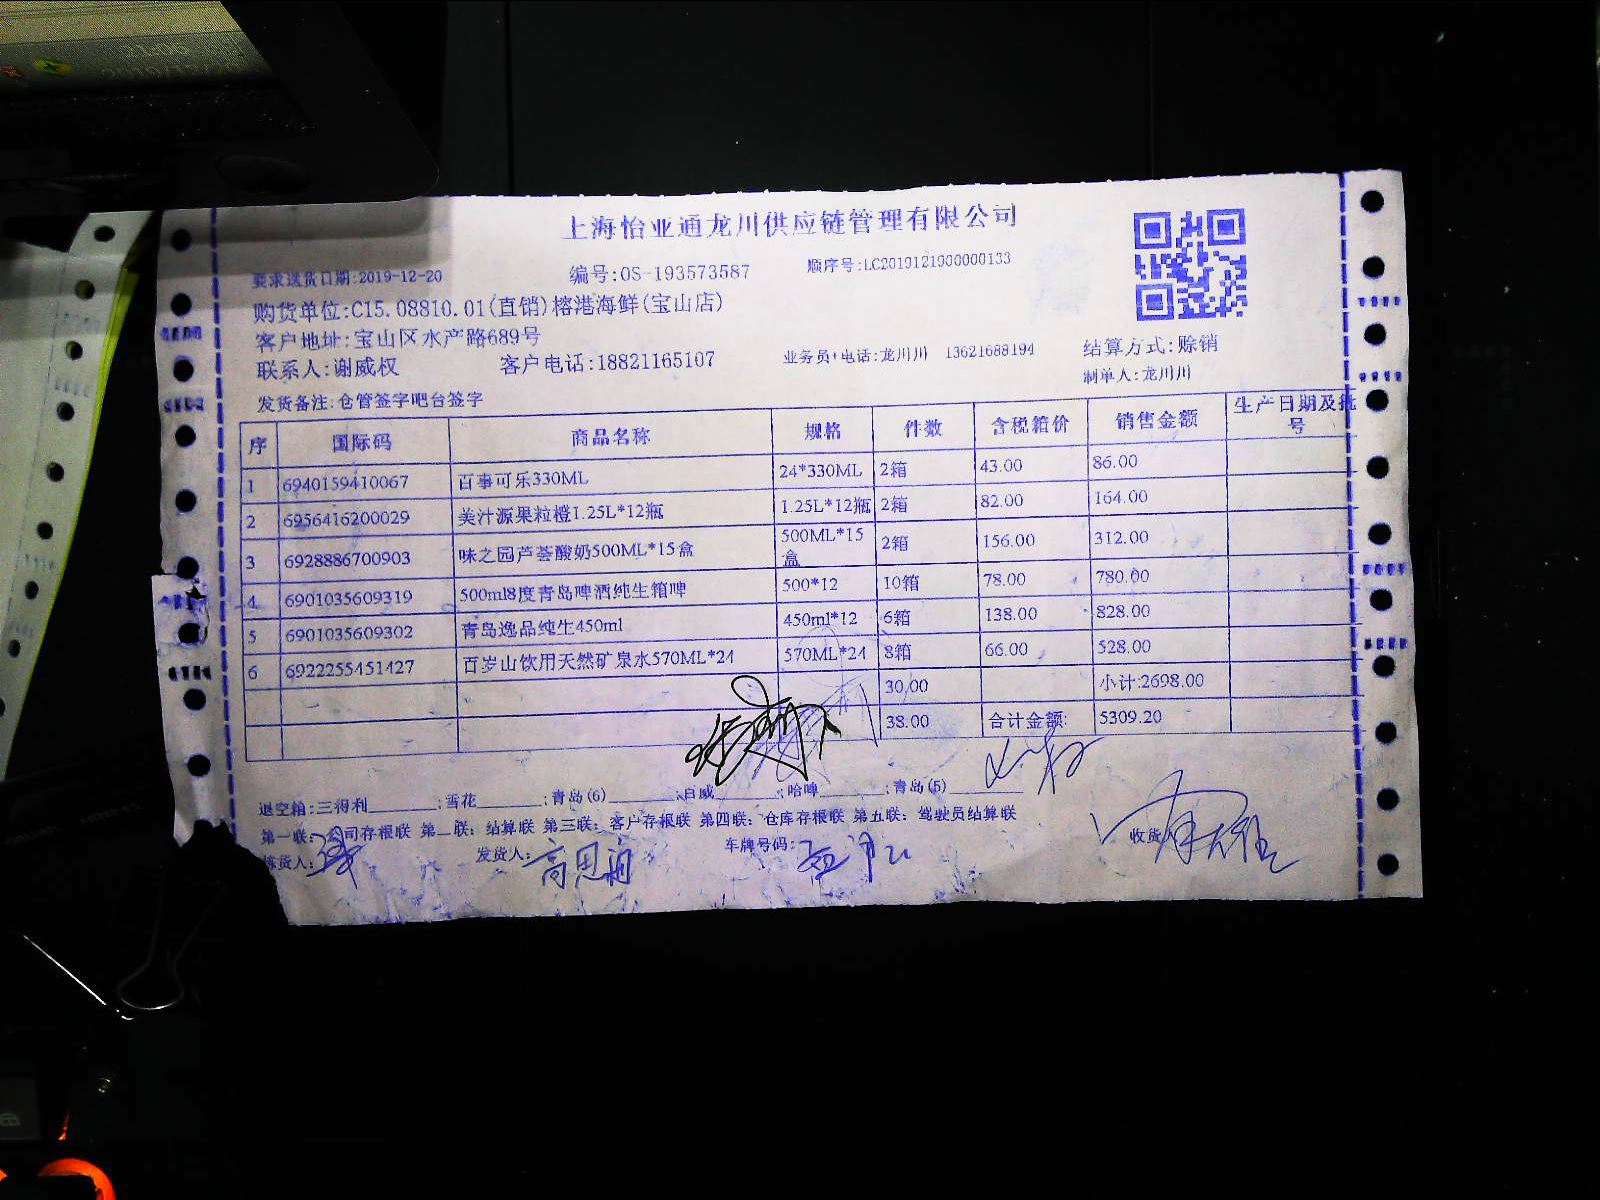 上海怡亚通龙川供应链管理有限公司
要求送货日期:2019-12-20 编号:OS-193573587 顺序号:LC2019121900000133
购货单位:C15.08810.01(直销)榕港海鲜(宝山店)
客户地址:宝山区水产路689号
联系人:谢威权 客户电话:18821165107 业务员+电话:龙川川 13621688194 结算方式:赊销
制单人:龙川川
发货备注:仓管签字吧台签字
序 国际码 商品名称 规格 件数 含税箱价 销售金额 生产日期及批号
1 6940159410067 百事可乐330ML 24*330ML 2箱 43.00 86.00
2 6956416200029 美汁源果粒橙1.25L*12瓶 1.25L*12瓶 2箱 82.00 164.00
3 6928886700903 味之园芦荟酸奶500ML*15盒 500ML*15盒 2箱 156.00 312.00
4 6901035609319 500ml8度青岛啤酒纯生箱啤 500*12 10箱 78.00 780.00
5 6901035609302 青岛逸品纯生450ml 450ml*12 6箱 138.00 828.00
6 6922255451427 百岁山饮用天然矿泉水570ML*24 570ML*24 8箱 66.00 528.00
30.00 小计:2698.00
38.00 合计金额: 5309.20
退空箱:三得利______;雪花______;青岛(6)______;百威______;哈啤______;青岛(5)______
第一联:公司存根联 第二联:结算联 第三联:客户存根联 第四联:仓库存根联 第五联:驾驶员结算联
拣货人: 发货人:高思润 车牌号码: 收货